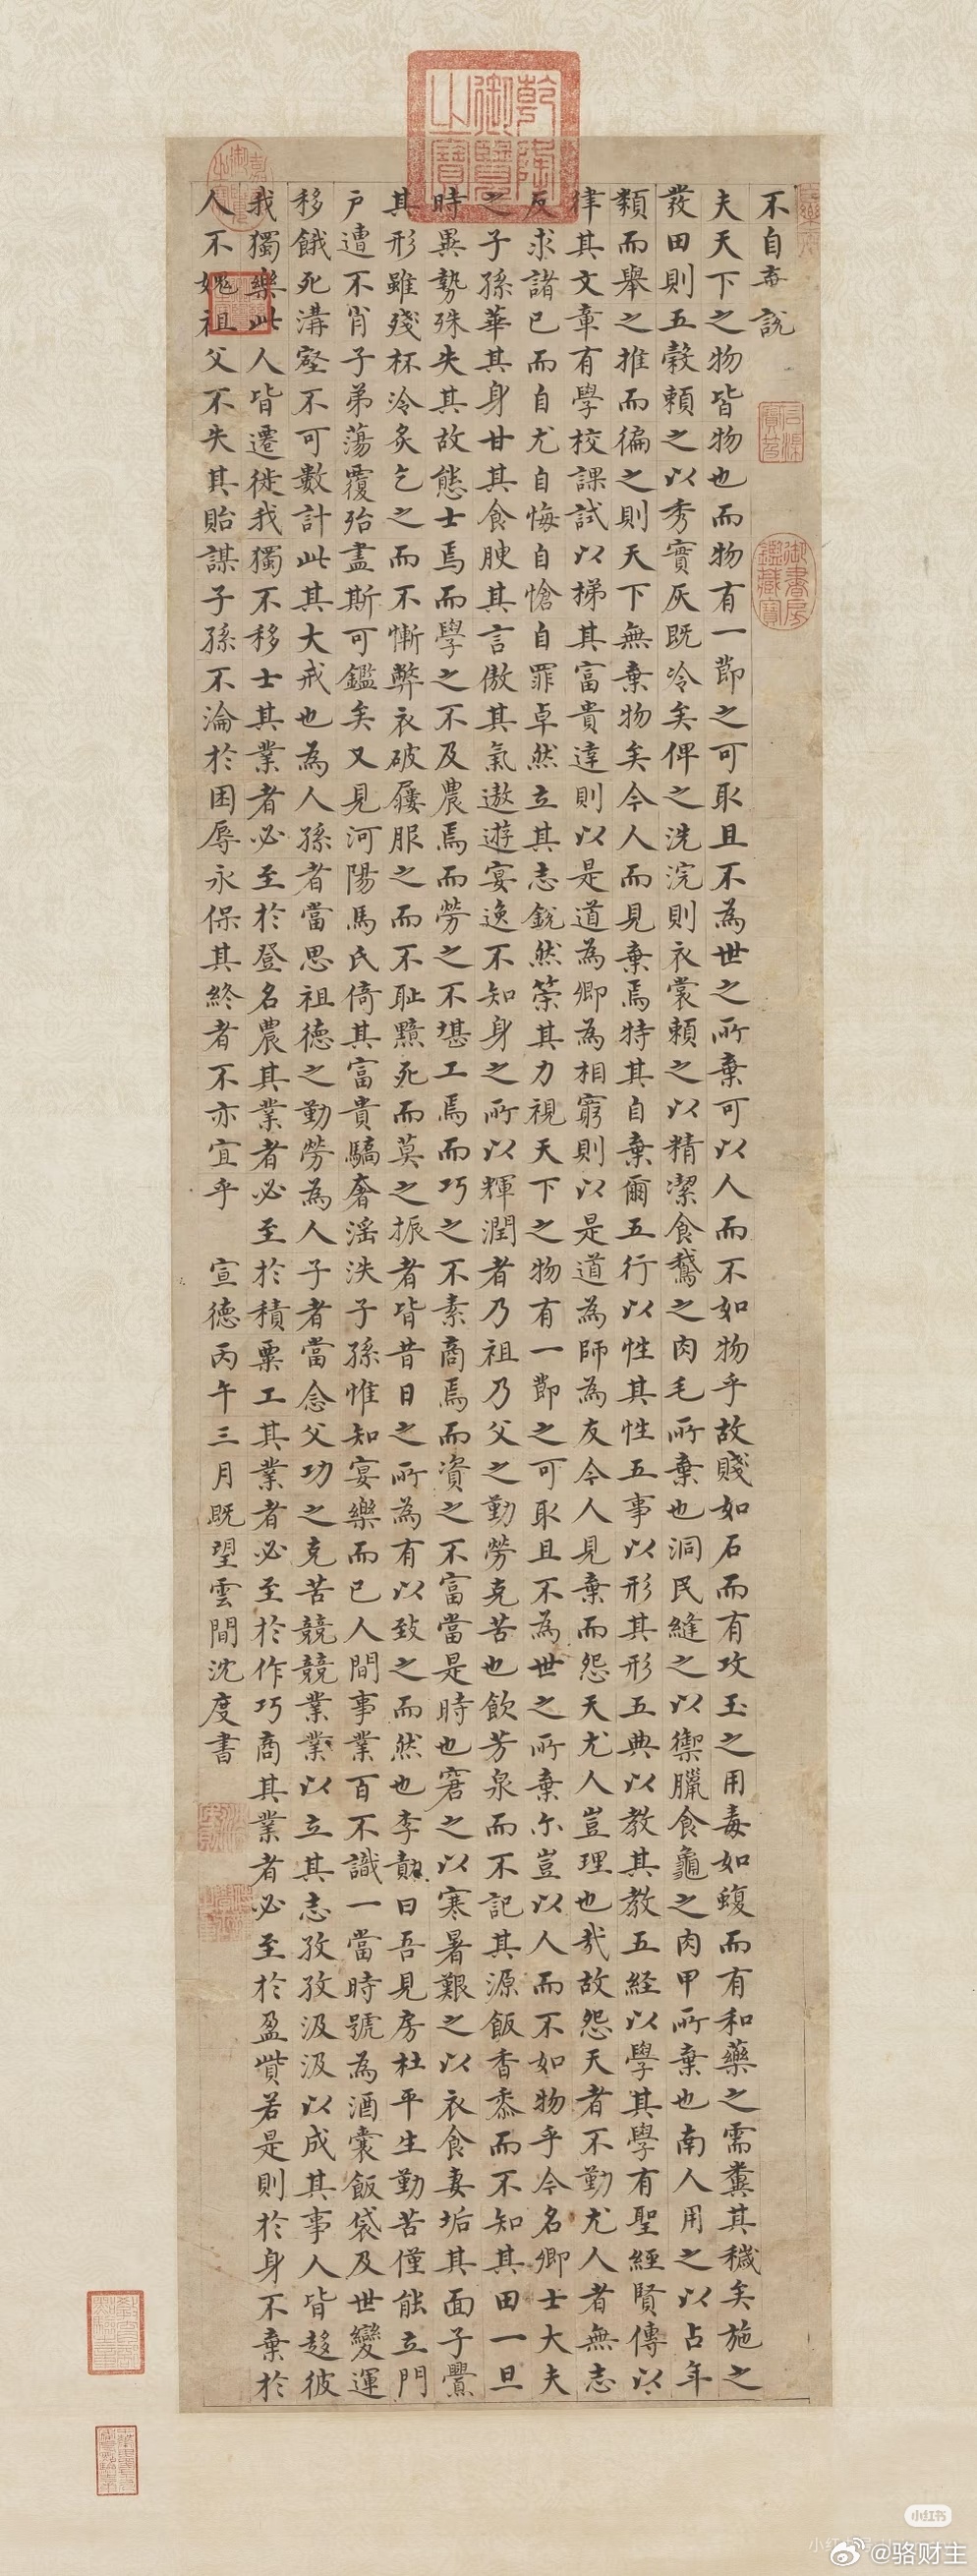 不自棄說
夫天下之物皆物也而物有一節之可取且不為世之所棄可以人而不如物乎故賤如石而有攻玉之用毒如蝮而有和藥之需糞其穢矣施之
發田則五穀賴之以秀實灰既冷矣俾之洗浣則衣裳賴之以精潔食鵞之肉毛所棄也洞民縫之以禦臘食龜之肉甲所棄也南人用之以占年
類而舉之推而徧之則天下無棄物矣今人而見棄焉特其自棄爾五行以性其性五事以形其形五典以教其教五経以學其學有聖經賢傳以
律其文章有學校課試以梯其富貴達則以是道為卿為相窮則以是道為師為友今人見棄而怨天尤人豈理也哉故怨天者不勤尤人者無志
反求諸已而自尤自悔自愴自罪卓然立其志銳然策其力視天下之物有一節之可取且不為世之所棄尓豈以人而不如物乎今名卿士大夫
之子孫華其身甘其食腴其言傲其氣遨遊宴逸不知身之所以輝潤者乃祖乃父之勤勞克苦也飲芳泉而不記其源飯香黍而不知其田一旦
時異勢殊失其故態士焉而學之不及農焉而勞之不堪工焉而巧之不素商焉而資之不富當是時也窘之以寒暑艱之以衣食妻垢其面子黌
其形雖殘杯冷炙乞之而不慚弊衣破屨服之而不耻黯死而莫之振者皆昔日之所為有以致之而然也李勣曰吾見房杜平生勤苦僅能立門
戶遭不肖子弟蕩覆殆盡斯可鑑矣又見河陽馬氏倚其富貴驕奢滛泆子孫惟知宴樂而已人間事業百不識一當時號為酒囊飯袋及世變運
移餓死溝壑不可數計此其大戒也為人孫者當思祖德之勤勞為人子者當念父功之克苦競競業業以立其志孜孜汲汲以成其事人皆趍彼
我獨樂此人皆遷徙我獨不移士其業者必至於登名農其業者必至於積粟工其業者必至於作巧商其業者必至於盈貲若是則於身不棄於
人不媿祖父不失其貽謀子孫不淪於困辱永保其終者不亦宜乎 宣德丙午三月既望雲間沈度書
乾隆御覽之寶
御書房鑑藏寶
小红书
@骆财主